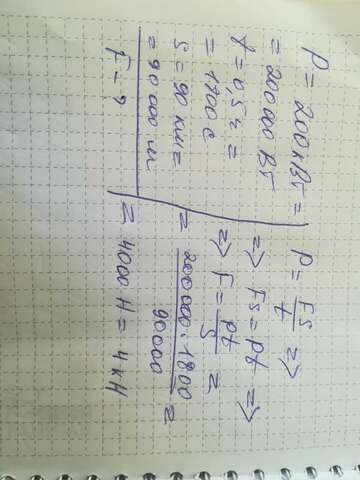 P = 200кВт =
= 200000 Вт
t = 0,5 ч =
= 1800 с
S = 90 км =
= 90 000 м
F - ?
P = FS/t =>
=> FS = Pt =>
=> F = Pt/S =
= 200000 · 1800/90000 =
= 4000 Н = 4 кН